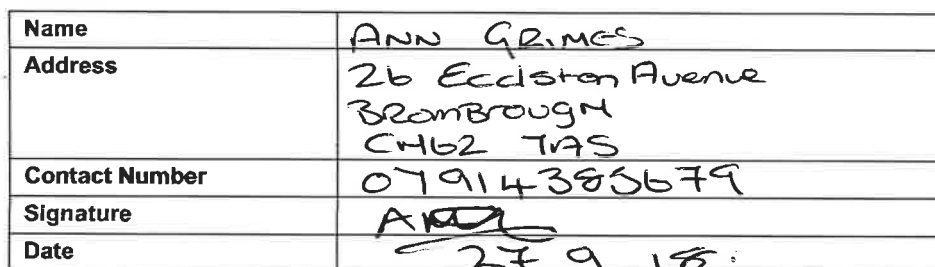 Name ANN GRIMES
Address 26 Eccliston Avenue
BROMBROUGH
CH62 7AS
Contact Number 07914385679
Signature
Date 27 9 18